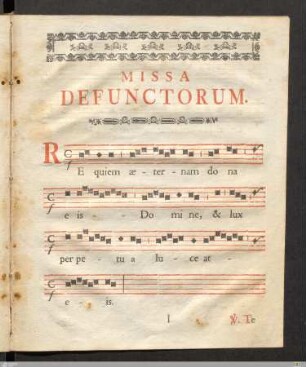 MISSA
DEFUNCTORUM.
REquiem æ - ter - nam do na
e is - - Do mi ne, & lux
per pe - tu a lu - ce at -
e - is.
I ℣. Te